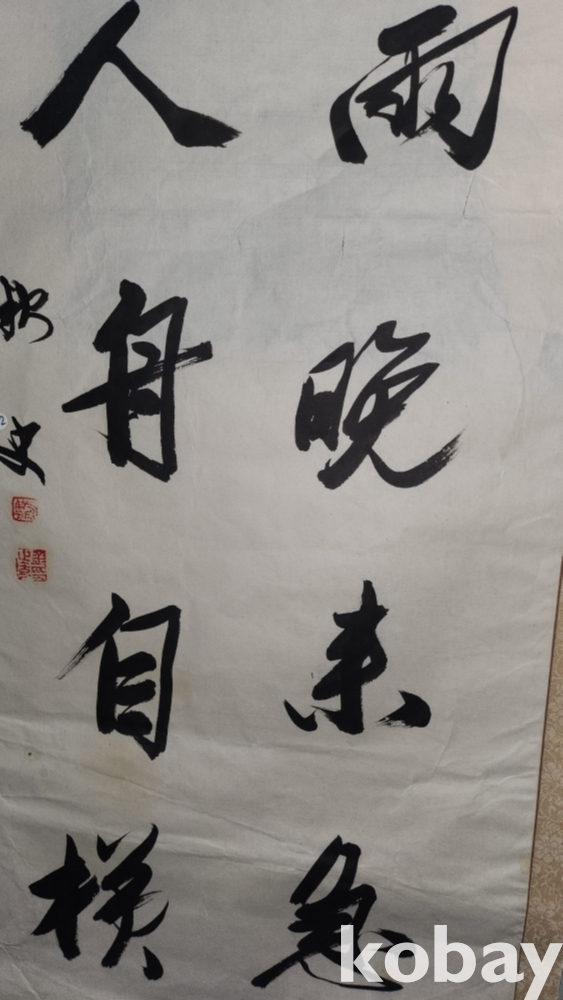 雨晚来急
人舟自横
史
kobay